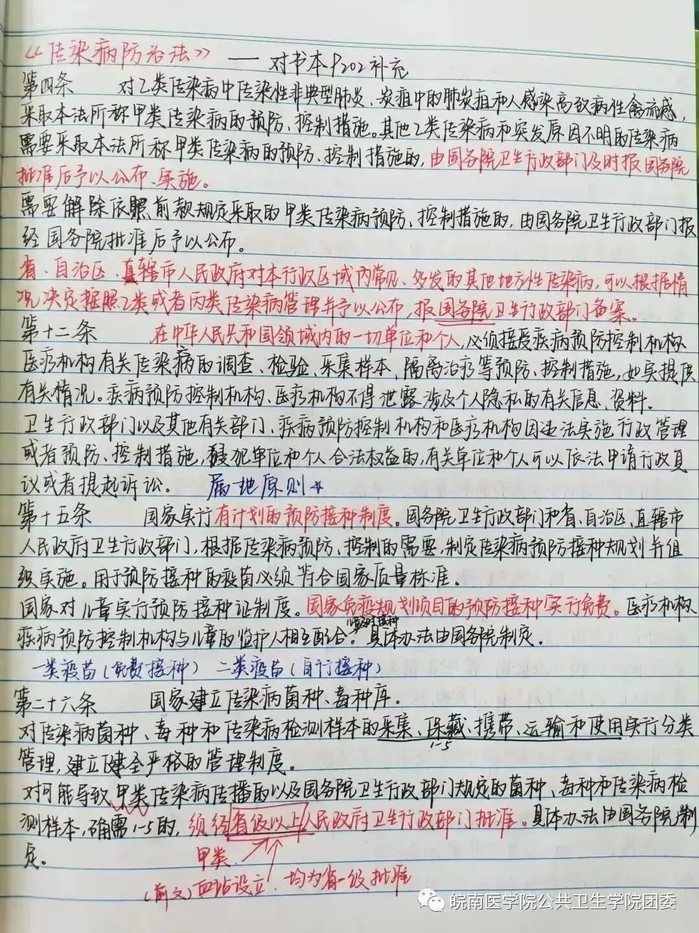 《传染病防治法》 —— 对书本P202补充
第四条 对乙类传染病中传染性非典型肺炎、炭疽中的肺炭疽和人感染高致病性禽流感,
采取本法所称甲类传染病的预防、控制措施。其他乙类传染病和突发原因不明的传染病
需要采取本法所称甲类传染病的预防、控制措施的,由国务院卫生行政部门及时报国务院
批准后予以公布、实施。
需要解除依照前款规定采取的甲类传染病预防、控制措施的,由国务院卫生行政部门报
经国务院批准后予以公布。
省、自治区、直辖市人民政府对本行政区域内常见、多发的其他地方性传染病,可以根据情
况决定按照乙类或者丙类传染病管理并予以公布,报国务院卫生行政部门备案。
第十二条 在中华人民共和国领域内的一切单位和个人,必须接受疾病预防控制机构、
医疗机构有关传染病的调查、检验、采集样本、隔离治疗等预防、控制措施,如实提供
有关情况。疾病预防控制机构、医疗机构不得泄露涉及个人隐私的有关信息、资料。
卫生行政部门以及其他有关部门、疾病预防控制机构和医疗机构因违法实施行政管理
或者预防、控制措施,侵犯单位和个人合法权益的,有关单位和个人可以依法申请行政复
议或者提起诉讼。 属地原则☆
第十五条 国家实行有计划的预防接种制度。国务院卫生行政部门和省、自治区、直辖市
人民政府卫生行政部门,根据传染病预防、控制的需要,制定传染病预防接种规划并组
织实施。用于预防接种的疫苗必须符合国家质量标准。
国家对儿童实行预防接种证制度。国家免疫规划项目的预防接种实行免费。医疗机构、
疾病预防控制机构与儿童的监护人相互配合。具体办法由国务院制定。
一类疫苗(免费接种) 二类疫苗(自行接种)
第二十六条 国家建立传染病菌种、毒种库。
对传染病菌种、毒种和传染病检测样本的采集、保藏、携带、运输和使用实行分类
1-5
管理,建立健全严格的管理制度。
对可能导致甲类传染病传播的以及国务院卫生行政部门规定的菌种、毒种和传染病检
测样本,确需1-5的,须经省级以上人民政府卫生行政部门批准。具体办法由国务院制
定。
甲类
(前文)四站设立 均为省一级批准
皖南医学院公共卫生学院团委